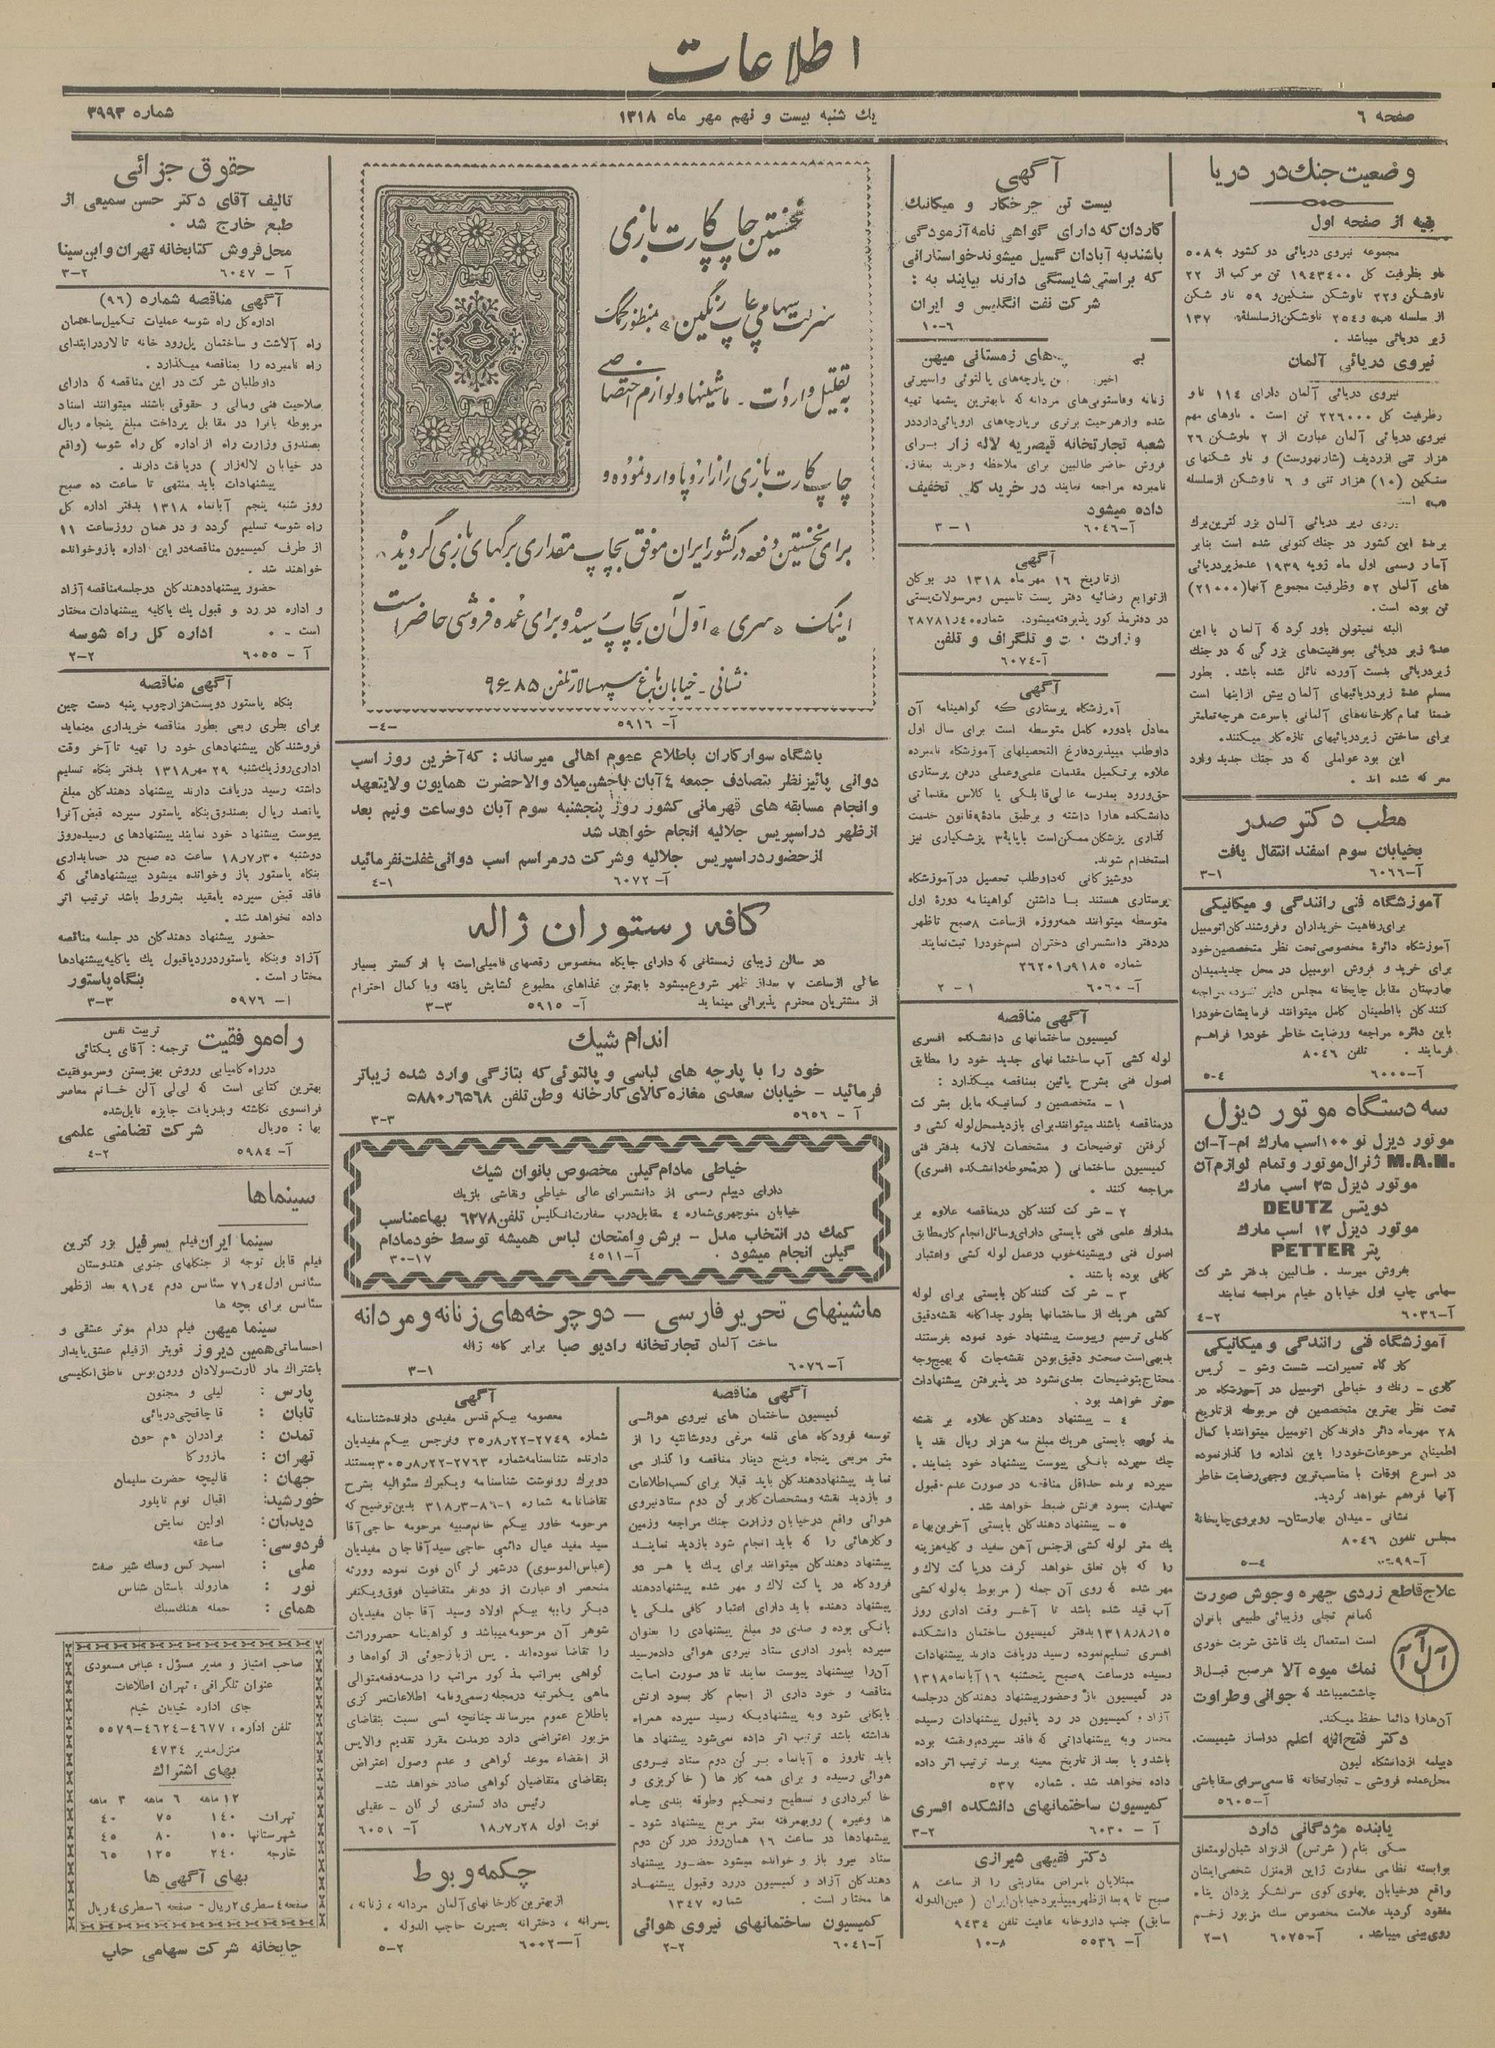 اطلاعات
صفحه ۶
یك شنبه بیست و نهم مهر ماه ۱۳۱۸
شماره ۳۹۹۳
وضعیت جنك در دریا
بقیه از صفحه اول
مجموعه نیروی دریائی دو کشور به ۵۰۸
ناو بظرفیت کل ۱۹۴۳۴۰۰ تن مرکب از ۲۲
زیر دریائی میباشد .
نیروی دریائی آلمان
نیروی دریائی آلمان دارای ۱۱۴ ناو
بظرفیت کل ۲۲۶۰۰۰ تن است . ناوهای مهم
هزار تنی ازردیف (شارنهورست) و ناو شکنهای
سنگین (۱۰) هزار تنی و ۶ ناوشکن ازسلسله
برندهٔ این کشور در جنك کنونی شده است بنابر
آمار رسمی اول ماه ژویه ۱۹۳۹ عده‌زیردریائی
های آلمان ۵۲ وظرفیت مجموع آنها(۲۱۰۰۰)
تن بوده است .
البته نمیتوان باور کرد که آلمان با این
عدهٔ زیر دریائی بموفقیت‌های بزرگی که در جنك
زیردریائی بدست آورده نائل شده باشد . بطور
مسلم عدهٔ زیردریائیهای آلمان بیش ازاینها است
ضمناً تمام کارخانه‌های آلمانی باسرعت هرچه تمامتر
برای ساختن زیردریائیهای تازه کار میکنند.
این بود عواملی که در جنك جدید وارد
معرکه شده اند .
مطب دکتر صدر
بخیابان سوم اسفند انتقال یافت
آ-۶۰۶۶ ۱-۳
آموزشگاه فنی رانندگی و میکانیکی
برای رفاهیت خریداران وفروشندکان اتومبیل
آموزشگاه دائرهٔ مخصوصی تحت نظر متخصصین خود
برای خرید و فروش اتومبیل در محل جدید میدان
بهارستان مقابل چاپخانه مجلس دایر نموده مراجعه
کنندکان بااطمینان کامل میتوانند فرمایشات خودرا
باین دائره مراجعه ورضایت خاطر خودرا فراهم
فرمایند . تلفن ۸۰۴۶
آ-۶۰۰۰ ۴-۵
سه دستگاه موتور دیزل
موتور دیزل نو ۱۰۰ اسب مارك ام-آ-ان
M.A.N. ژنرال موتور و تمام لوازم آن
موتور دیزل ۲۵ اسب مارك
دویتس DEUTZ
موتور دیزل ۱۳ اسب مارك
پتر PETTER
بفروش میرسد . طالبین بدفتر شرکت
سهامی چاپ اول خیابان خیام مراجعه نمایند
آ-۶۰۳۶ ۲-۴
آموزشگاه فنی رانندگی و میکانیکی
کار گاه تعمیرات- شست وشو - گریس
کاری - رنك و خیاطی اتومبیل در آموزشگاه در
تحت نظر بهترین متخصصین فن مربوطه ازتاریخ
۲۸ مهرماه دائر دارندگان اتومبیل میتوانند با کمال
اطمینان مرجوعات خودرا باین اداره واگذار نموده
در اسرع اوقات با مناسب‌ترین وجهی رضایت خاطر
آنها فرهم خواهد گردید.
نشانی - میدان بهارستان- روبروی چاپخانهٔ
مجلس تلفون ۸۰۴۶
۴-۵
علاج قاطع زردی چهره وجوش صورت
که مانع تجلی وزیبائی طبیعی بانوان
است استعمال یك قاشق شربت خوری
نمك میوه آلا هر صبح قبل از
چاشت میباشد که جوانی وطراوت
آن هارا دائما حفظ میکند.
دکتر فتح‌الله اعلم دواساز شیمیست.
دیپلمه ازدانشگاه لیون
محل عمده فروشی - تجارتخانه قاسمی سرای سقاباشی
آ-۵۶۰۵
یابنده مژدگانی دارد
سگی بنام ( شرتس) ازنژاد شیان‌لو متعلق
بوابسته نظامی سفارت ژاپن ازمنزل شخصی ایشان
واقع درخیابان پهلوی کوی سرلشگر یزدان پناه
مفقود گردید علامت مخصوص سك مزبور زخم
روی بینی میباشد . آ-۶۰۷۵ ۱-۲
آگهی
بیست تن چرخکار و میکانیك
کاردان که دارای گواهی نامه آزمودگی
باشند به آبادان گسیل میشوند خواستارانی
که براستی شایستگی دارند بیایند به :
شرکت نفت انگلیس و ایران
۶-۱۰
زنانه وفاستونی‌های مردانه که بابهترین پشمها تهیه
شعبه تجارتخانه قیصریه لاله زار برای
فروش حاضر طالبین برای ملاحظه وخرید بمغازه
نامبرده مراجعه نمایند در خرید کلی تخفیف
داده میشود
آ-۶۰۴۶ ۱-۳
آگهی
ازتاریخ ۱۶ مهر ماه ۱۳۱۸ در بوکان
ازتوابع رضائیه دفتر پست تاسیس ومرسولات پستی
در دفتر مذکور پذیرفته میشود. شماره ۲۸۷۸۱ر۴۰۰
وزارت پست و تلگراف و تلفن
آ-۶۰۷۴
آگهی
آموزشگاه پرستاری که گواهینامه آن
معادل بادوره کامل متوسطه است برای سال اول
داوطلب میپذیردفارغ التحصیلهای آموزشگاه نامبرده
علاوه بر تکمیل مقدمات علمی وعملی درفن پرستاری
حق ورود بمدرسه عالی قابلگی یا کلاس مقدماتی
دانشکده هارا داشته و برطبق مادهٔ ۹ قانون خدمت
گذاری پزشکان ممکن است باپایهٔ ۳ پزشکیاری نیز
استخدام شوند.
دوشیزکانی که داوطلب تحصیل در آموزشگاه
پرستاری هستند با داشتن گواهینامه دورهٔ اول
متوسطه میتوانند همه‌روزه ازساعت ۸ صبح تاظهر
دردفتر دانشسرای دختران اسم خودرا ثبت نمایند
شماره ۹۱۸۵ر۲۶۲۰۱
آ-۶۰۶۰ ۱-۲
آگهی مناقصه
کمیسیون ساختمانهای دانشکده افسری
لوله کشی آب ساختمانهای جدید خود را مطابق
اصول فنی بشرح پائین بمناقصه میگذارد :
۱ - متخصصین و کسانیکه مایل بشرکت
درمناقصه باشند میتوانند برای بازدید محل لوله کشی و
گرفتن توضیحات و مشخصات لازمه بدفتر فنی
کمیسیون ساختمانی ( درمحوطه دانشکده افسری)
مراجعه کنند .
۲ - شرکت کنندکان درمناقصه علاوه بر
مدارك علمی فنی بایستی دارای وسائل انجام کار مطابق
اصول فنی وپیشینه خوب درعمل لوله کشی واعتبار
کافی بوده باشند .
۳ - شرکت کنندکان بایستی برای لوله
کشی هریك از ساختمانها بطور جداگانه نقشه دقیق
کاملی ترسیم وپیوست پیشنهاد خود نموده بفرستند
بدیهی است صحت و دقیق بودن نقشه‌جات که بهیچوجه
محتاج بتوضیحات بعدی نشود در پذیرفتن پیشنهادات
موثر خواهد بود .
۴ - پیشنهاد دهندکان علاوه بر نقشه
مذکور بایستی هریك مبلغ سه هزار ریال نقد یا
چك سپرده بانکی پیوست پیشنهاد خود بنمایند .
سپرده برنده حداقل مناقصه در صورت عدم قبول
تعهدات بسود ارتش ضبط خواهد شد.
۵ - پیشنهاد دهندکان بایستی آخرین بهاء
یك متر لوله کشی ازجنس آهن سفید و کلیه هزینه
را که بان تعلق خواهد گرفت درپاکت لاك و
مهر شده که روی آن جمله ( مربوط به لوله کشی
آب قید شده باشد تا آخر وقت اداری روز
۱۳۱۸/۸/۱۵ بدفتر کمیسیون ساختمان دانشکده
افسری تسلیم نموده رسید دریافت دارند پیشنهادات
رسیده درساعت ۹ صبح پنجشنبه ۱۶ آبانماه ۱۳۱۸
در کمیسیون باز وحضور پیشنهاد دهندکان درجلسه
آزاد . کمیسیون در رد یاقبول پیشنهادات رسیده
مختار وبه پیشنهاداتی که فاقد سپرده ونقشه بوده
باشد و یا بعد از تاریخ معینه برسد ترتیب اثر داده
داده نخواهد شد . شماره ۵۳۷
کمیسیون ساختمانهای دانشکده افسری
آ - ۶۰۳۰ ۲-۳
دکتر فقیهی شیرازی
مبتلایان بامراض مقاربتی را از ساعت ۸
صبح تا ۹ بعدازظهر میپذیرد خیابان ایران ( عین الدوله
سابق) جنب داروخانه عافیت تلفن ۹۴۳۴
آ- ۵۵۳۶ ۸-۱۰
نخستین چاپ کارت بازی
شرکت سهامی چاپ رنگین، بمنظور کمک
به تقلیل واردات - ماشینها و لوازم اختصاصی
چاپ کارت بازی را از اروپا وارد نموده و
برای نخستین دفعه در کشور ایران موفق بچاپ مقداری برگهای بازی گردیده
اینک «سری» اول آن بچاپ رسیده و برای عمده فروشی حاضر است
نشانی - خیابان باغ سپهسالار تلفن ۸۵-۹۶
آ- ۵۹۱۶ -۴-
باشگاه سوارکاران باطلاع عموم اهالی میرساند : که آخرین روز اسب
دوانی پائیز نظر بتصادف جمعه ۴ آبان باجشن میلاد والاحضرت همایون ولایتعهد
وانجام مسابقه های قهرمانی کشور روز پنجشنبه سوم آبان دوساعت ونیم بعد
ازظهر دراسپریس جلالیه انجام خواهد شد
از حضور در اسپریس جلالیه وشرکت درمراسم اسب دوانی غفلت نفرمائید
آ- ۶۰۷۲ ۱-۴
کافه رستوران ژاله
در سالن زیبای زمستانی که دارای جایگاه مخصوص رقصهای فامیلی است با ارکستر بسیار
عالی ازساعت ۷ بعداز ظهر شروع میشود بابهترین غذاهای مطبوع گشایش یافته وبا کمال احترام
از مشتریان محترم پذیرائی مینماید
آ- ۵۹۱۵ ۳-۳
اندام شیك
خود را با پارچه های لباسی و پالتوئی که بتازگی وارد شده زیباتر
فرمائید - خیابان سعدی مغازه کالای کارخانه وطن تلفن ۶۵۶۸ر۵۸۸۰
آ - ۵۶۵۶ ۳-۳
خیاطی مادام گیلن مخصوص بانوان شیك
دارای دیپلم رسمی از دانشسرای عالی خیاطی ونقاشی بلژیك
خیابان منوچهری شماره ۴ مقابل درب سفارت انگلیس تلفن ۶۲۷۸ بهاء مناسب
کمك در انتخاب مدل - برش وامتحان لباس همیشه توسط خود مادام
گیلن انجام میشود . آ-۴۵۱۱ ۱۷-۳۰
ماشینهای تحریر فارسی - دوچرخه‌های زنانه و مردانه
ساخت آلمان تجارتخانه رادیو صبا برابر کافه ژاله
آ-۶۰۷۶ ۱-۳
آگهی مناقصه
کمیسیون ساختمان های نیروی هوائی
توسعه فرودگاه های قلعه مرغی ودوشانتپه را از
متر مربعی پنجاه وپنج دینار مناقصه واگذار می
نماید پیشنهاددهندکان باید قبلا برای کسب اطلاعات
و بازدید نقشه ومشخصات کار برکن دوم ستادنیروی
هوائی واقع درخیابان وزارت جنك مراجعه وزمین
وکارهائی را که باید انجام شود بازدید نمایند
پیشنهاد دهندکان میتوانند برای یك یا هر دو
فرودگاه در پاکت لاك و مهر شده پیشنهاددهند
پیشنهاد دهنده باید دارای اعتبار کافی ملکی یا
بانکی بوده و صدی دو مبلغ پیشنهادی را بعنوان
سپرده بامور اداری ستاد نیروی هوائی داده رسید
آن‌را بپیشنهاد پیوست نمایند تا در صورت اصابت
مناقصه و خود داری از انجام کار بسود ارتش
بایگانی شود وبه پیشنهادیکه رسید سپرده همراه
نداشته باشد ترتیب اثر داده نمیشود پیشنهاد ها
باید تاروز ۵ آبانماه برکن دوم ستاد نیروی
هوائی رسیده و برای همه کار ها ( خاکریزی و
خاکبرداری و تسطیح وتحکیم وطوقه بندی چاه
ها وغیره ) رویهمرفته بمتر مربع پیشنهاد شود -
پیشنهادها در ساعت ۱۶ همان‌روز دررکن دوم
ستاد نیرو باز و خوانده میشود حضور پیشنهاد
دهندکان آزاد و کمیسیون دررد وقبول پیشنهاد
ها مختار است . شماره ۱۳۴۷
کمیسیون ساختمانهای نیروی هوائی
آ-۶۰۴۱ ۲-۲
آگهی
معصومه بیگم قدس مفیدی دارنده شناسنامه
شماره ۲۷۴۹-۲۲ر۸ر۳۵ ونرجس بیگم مفیدیان
دارنده شناسنامه شماره ۲۷۶۳-۲۲ر۸ر۳۰۵ بمستند
دوبرك رونوشت شناسنامه ویکبرك سئوالیه بشرح
تقاضانامه شماره ۱-۸۶-۳ر۳۱۸ بدین توضیح که
مرحومه خاور بیگم خانم صبیه مرحومه حاجی آقا
سید مفید عیال دائمی حاجی سیدآقا جان مفیدیان
(عباس الموسوی) درشهر لرگان فوت نموده وورثه
منحصر او عبارت از دونفر متقاضیان فوق ویکنفر
دیگر ربابه بیگم اولاد وسید آقا جان مفیدیان
شوهر آن مرحومه میباشد و گواهینامه حصر وراثت
را تقاضا نموده‌اند . پس ازباز جوئی از گواه‌ها و
گواهی بمراتب مذکور مراتب را درسه دفعه متوالی
ماهی یکمرتبه درمجله رسمی ونامه اطلاعات مرکزی
باطلاع عموم میرساند چنانچه کسی نسبت بتقاضای
مزبور اعتراضی دارد درمدت مقرر تقدیم والا پس
از انقضاء موعد گواهی و عدم وصول اعتراض
بتقاضای متقاضیان گواهی صادر خواهد شد-
رئیس داد گستری لرگان - عقیلی
نوبت اول ۲۸ر۷ر۱۸ آ- ۶۰۵۱
چکمه و بوط
ازبهترین کارخانهای آلمان مردانه ، زنانه ،
پسرانه ، دخترانه بصیرت حاجب الدوله .
آ-۶۰۰۲ ۲-۵
حقوق جزائی
تالیف آقای دکتر حسن سمیعی از
طبع خارج شد .
محل فروش کتابخانه تهران وابن سینا
آ - ۶۰۴۷ ۲-۳
آگهی مناقصه شماره (۹۶)
اداره کل راه شوسه عملیات تکمیل ساختمان
راه آلاشت و ساختمان پل‌رود خانه تالار درابتدای
راه نامبرده را بمناقصه میگذارد .
داوطلبان شرکت در این مناقصه که دارای
صلاحیت فنی ومالی و حقوقی باشند میتوانند اسناد
مربوطه بانرا در مقابل پرداخت مبلغ پنجاه ریال
بصندوق وزارت راه از اداره کل راه شوسه (واقع
در خیابان لاله‌زار ) دریافت دارند .
پیشنهادات باید منتهی تا ساعت ده صبح
روز شنبه پنجم آبانماه ۱۳۱۸ بدفتر اداره کل
راه شوسه تسلیم گردد و در همان روزساعت ۱۱
از طرف کمیسیون مناقصه در این اداره باز وخوانده
خواهند شد .
حضور پیشنهاد دهندکان در جلسه مناقصه آزاد
و اداره در رد و قبول یك یا کلیه پیشنهادات مختار
است . اداره کل راه شوسه
آ - ۶۰۵۵ ۲-۲
آگهی مناقصه
بنگاه پاستور دویست هزار چوب پنبه دست چین
برای بطری ربعی بطور مناقصه خریداری مینماید
فروشندگان پیشنهادهای خود را تهیه تا آخر وقت
اداری روز یکشنبه ۲۹ مهر ۱۳۱۸ بدفتر بنگاه تسلیم
داشته رسید دریافت دارند پیشنهاد دهندگان مبلغ
پانصد ریال بصندوق بنگاه پاستور سپرده قبض آنرا
پیوست پیشنهاد خود نمایند پیشنهادهای رسیده روز
دوشنبه ۳۰ر۷ر۱۸ ساعت ده صبح در حسابداری
بنگاه پاستور باز وخوانده میشود پیشنهادهائی که
فاقد قبض سپرده یامقید بشروط باشد ترتیب اثر
داده نخواهد شد .
حضور پیشنهاد دهندکان در جلسه مناقصه
آزاد وبنگاه پاستور دررد یاقبول یك یا کلیه پیشنهادها
مختار است . بنگاه پاستور
آ- ۵۹۷۶ ۳-۳
راه موفقیت
تربیت نفس
ترجمه : آقای یکتائی
درراه کامیابی وروش بهزیستن وسر موفقیت
بهترین کتابی است که لی‌لی آلن خانم معاصر
فرانسوی نگاشته وبدریافت جایزه نایل شده
بها : ۵ ریال شرکت تضامنی علمی
آ- ۵۹۸۴ ۲-۴
سینماها
سینما ایران فیلم پسر فیل بزرگترین
فیلم قابل توجه از جنگلهای جنوبی هندوستان
سئانس برای بچه ها
سینما میهن فیلم درام موثر عشقی و
احساساتی همین دیروز قویتر از فیلم عشق پایدار
پارس : لیلی و مجنون
تابان : قاچاقچی دریائی
تمدن : برادران هم خون
تهران : مازورکا
جهان : قالیچه حضرت سلیمان
خورشید: اقبال توم تایلور
دیدبان: اولین نمایش
فردوسی: صاعقه
ملی : اسب‌رکس وسك شیر صفت
نور : هارولد باستان شناس
همای : حمله هنك سبك
صاحب امتیاز و مدیر مسؤل : عباس مسعودی
عنوان تلگرافی : تهران اطلاعات
جای اداره خیابان خیام
تلفن اداره : ۴۶۷۷-۴۶۲۴-۵۵۷۹
منزل مدیر ۴۷۳۴
بهای اشتراك
۱۲ ماهه ۶ ماهه ۳ ماهه
تهران ۱۴۰ ۷۵ ۴۰
شهرستانها ۱۵۰ ۸۰ ۴۵
خارجه ۲۴۰ ۱۲۵ ۶۵
بهای آگهی ها
صفحه ۴ سطری ۲ ریال - صفحه ۶ سطری ۴ ریال
چاپخانه شرکت سهامی چاپ